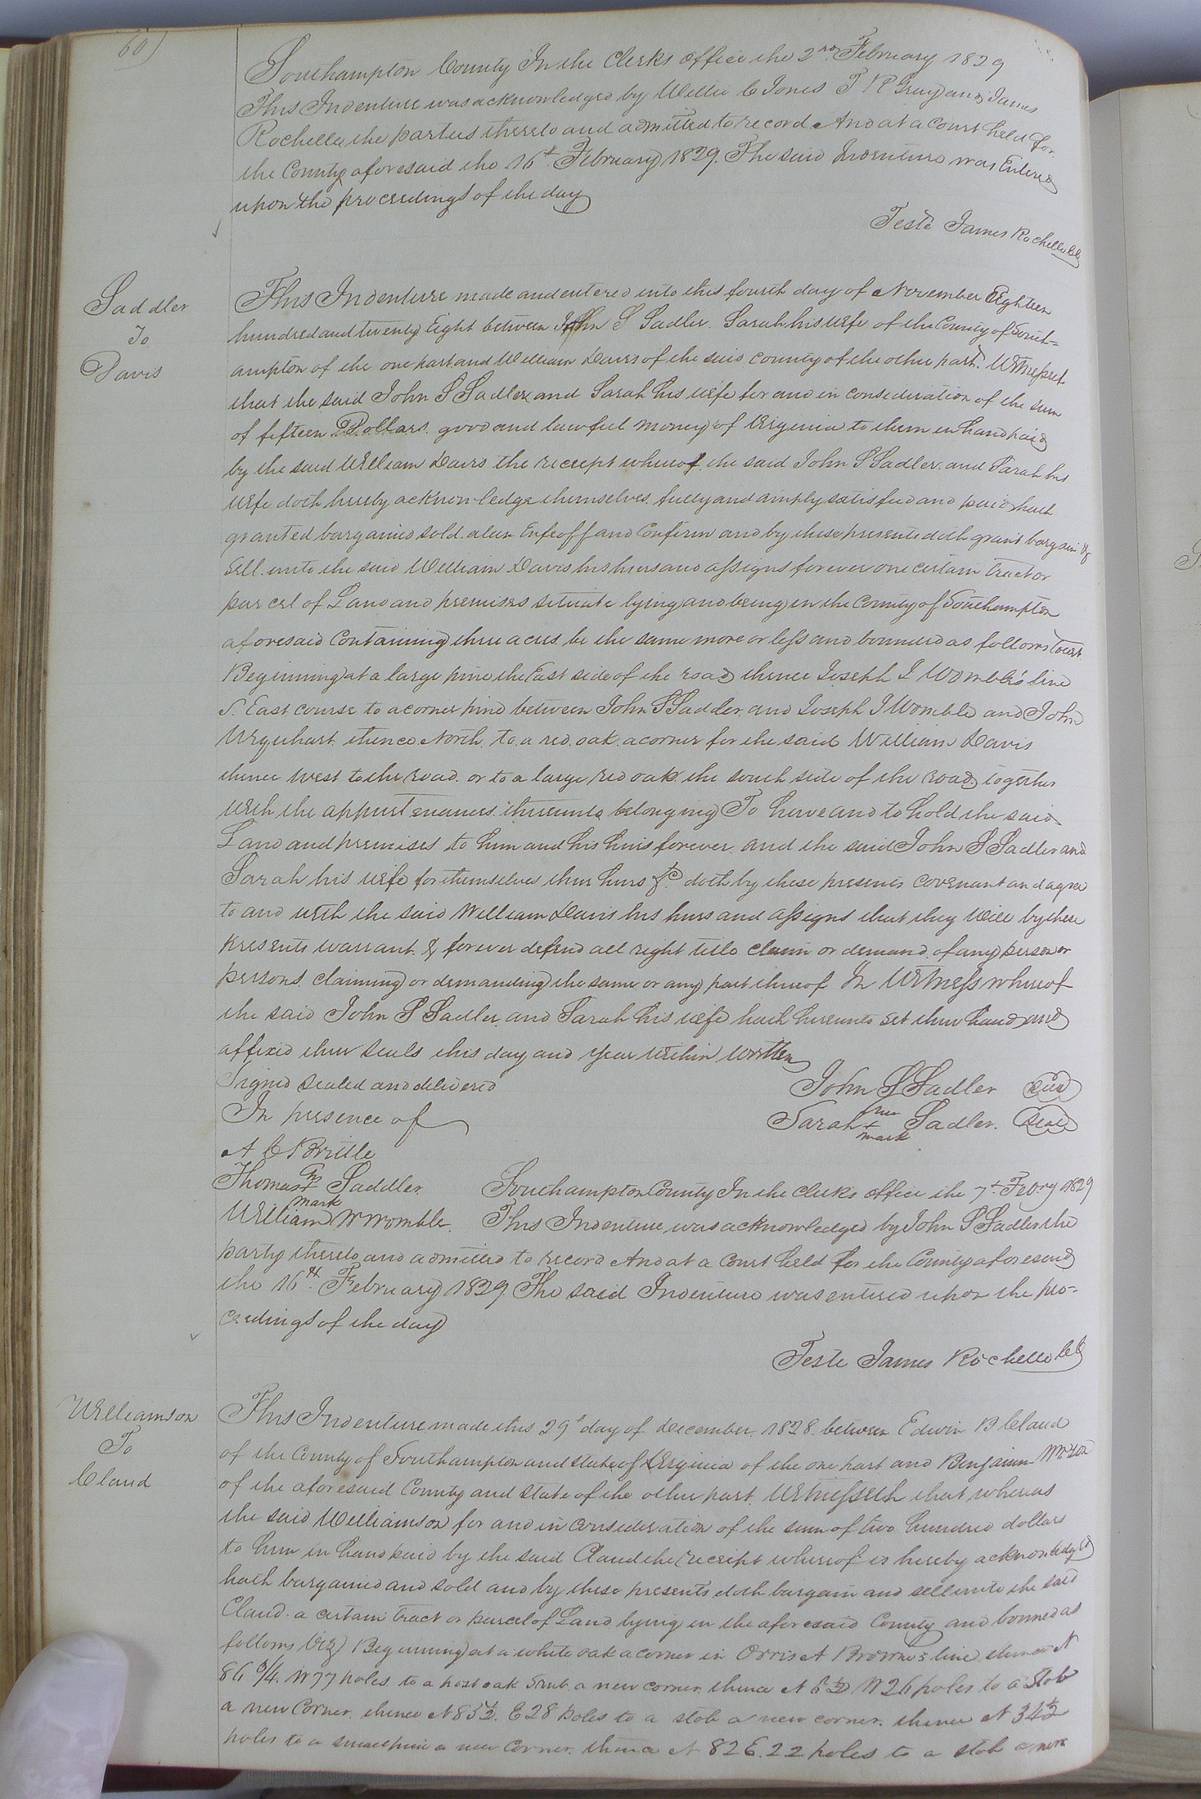 60)
Southampton County In the Clerks office the 2nd February 1829
This Indenture was acknowledged by Willie C Jones T R Gray and James
Rochelle the parties thereto and admitted to record And at a Court held for
the County aforesaid the 16t February 1829. The said Indenture was Entered
upon the proceedings of the day
Teste James Rochelle Clk
Saddler
To
Davis
This Indenture made and entered into this fourth day of November Eighteen
hundred and twenty Eight between John S Sadler. Sarah his wife of the County of South=
ampton of the one part and William Davis of the said county of the other part. Witnesseth
that the said John S Sadler and Sarah his wife for and in consideration of the sum
of fifteen Dollars. good and lawful money of Virginia to them in hand paid
by the said William Davis the receipt whereof the said John S Sadler and Sarah his
wife doth hereby acknowledge themselves fully and amply satisfied and paid hath
granted bargained sold. alien Enfeoff and Confirm and by these presents doth grant bargain &
Sell unto the said William Davis his heirs and assigns forever one certain tract or
parcel of Land and premises situate lying and being in the County of Southampton
aforesaid Containing three acres be the same more or less and bounded as follows towit
Beginning at a large pine the East side of the road thence Joseph J Womble's line
S. East course to a corner pine between John S Sadler and Joseph J Womble and John
Urquhart thence North to a red oak a corner for the said William Davis
thence West to the road. or to a large red oak the south side of the road together
with the appurtenances thereunto belonging To have and to hold the said
Land and premises to him and his heirs forever and the said John S Sadler and
Sarah his wife for themselves their heirs &c doth by these presents covenant and agree
to and with the said William Davis his heirs and assigns that they will by these
presents warrant & forever defend all right title claim or demand of any person or
persons claiming or demanding the same or any part thereof In Witness whereof
the said John S Sadler and Sarah his wife hath hereunto set their hand and
affixed their seals this day and year within written
Signed sealed and delivered
John S Sadler Seal
In presence of
Sarah her + mark Sadler. Seal
A C Brittle
Thomas mark Saddler
William W Womble.
Southampton County In the Clerks office the 7t Febry 1829
This Indenture was acknowledged by John S Sadler the
party thereto and admitted to record And at a Court held for the County aforesaid
the 16th February 1829 The said Indenture was entered upon the pro=
ceedings of the day
Teste James Rochelle Clk
Williamson
To
Claud
This Indenture made this 29t day of December 1828. between Edwin B Claud
of the County of Southampton and State of Virginia of the one part and Benjamin
of the aforesaid County and State of the other part. Witnesseth that whereas
the said Williamson for and in consideration of the sum of two hundred dollars
to him in hand paid by the said Claud the receipt whereof is hereby acknowledged
hath bargained and sold and by these presents doth bargain and sell unto the said
Claud a certain tract or parcel of Land lying in the aforesaid County and bounded as
follows (viz) Beginning at a white oak a corner in Orris A Browne's line thence N
86 3/4. W 77 poles to a post oak a new corner thence N W 26 poles to a Stob
a new Corner. thence N 85½. E 28 poles to a stob a new corner. thence N 34½
poles to a small pine a new Corner. thence N 82 E. 22 poles to a stob a new